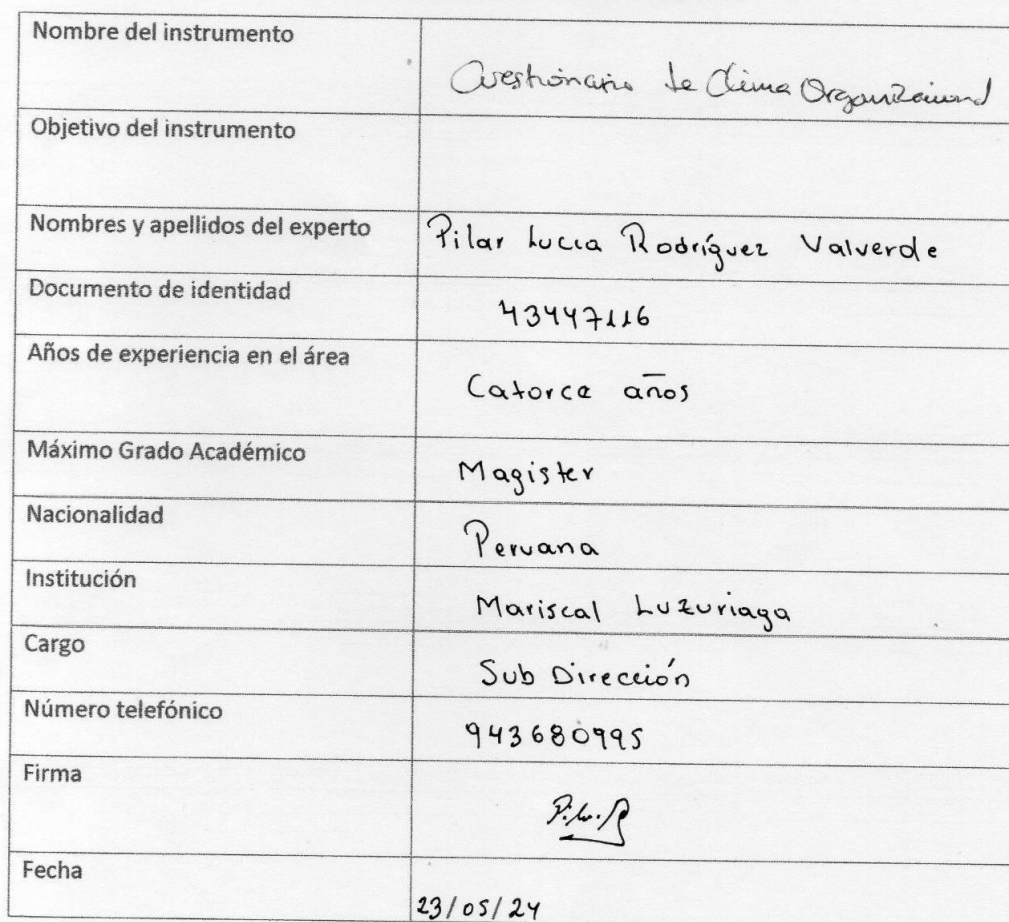 Nombre del instrumento
Cuestionario de Clima Organizacional
Objetivo del instrumento
Nombres y apellidos del experto
Pilar Lucia Rodríguez Valverde
Documento de identidad
43447116
Años de experiencia en el área
Catorce años
Máximo Grado Académico
Magister
Nacionalidad
Peruana
Institución
Mariscal Luzuriaga
Cargo
Sub Dirección
Número telefónico
943680995
Firma
Fecha
23/05/24